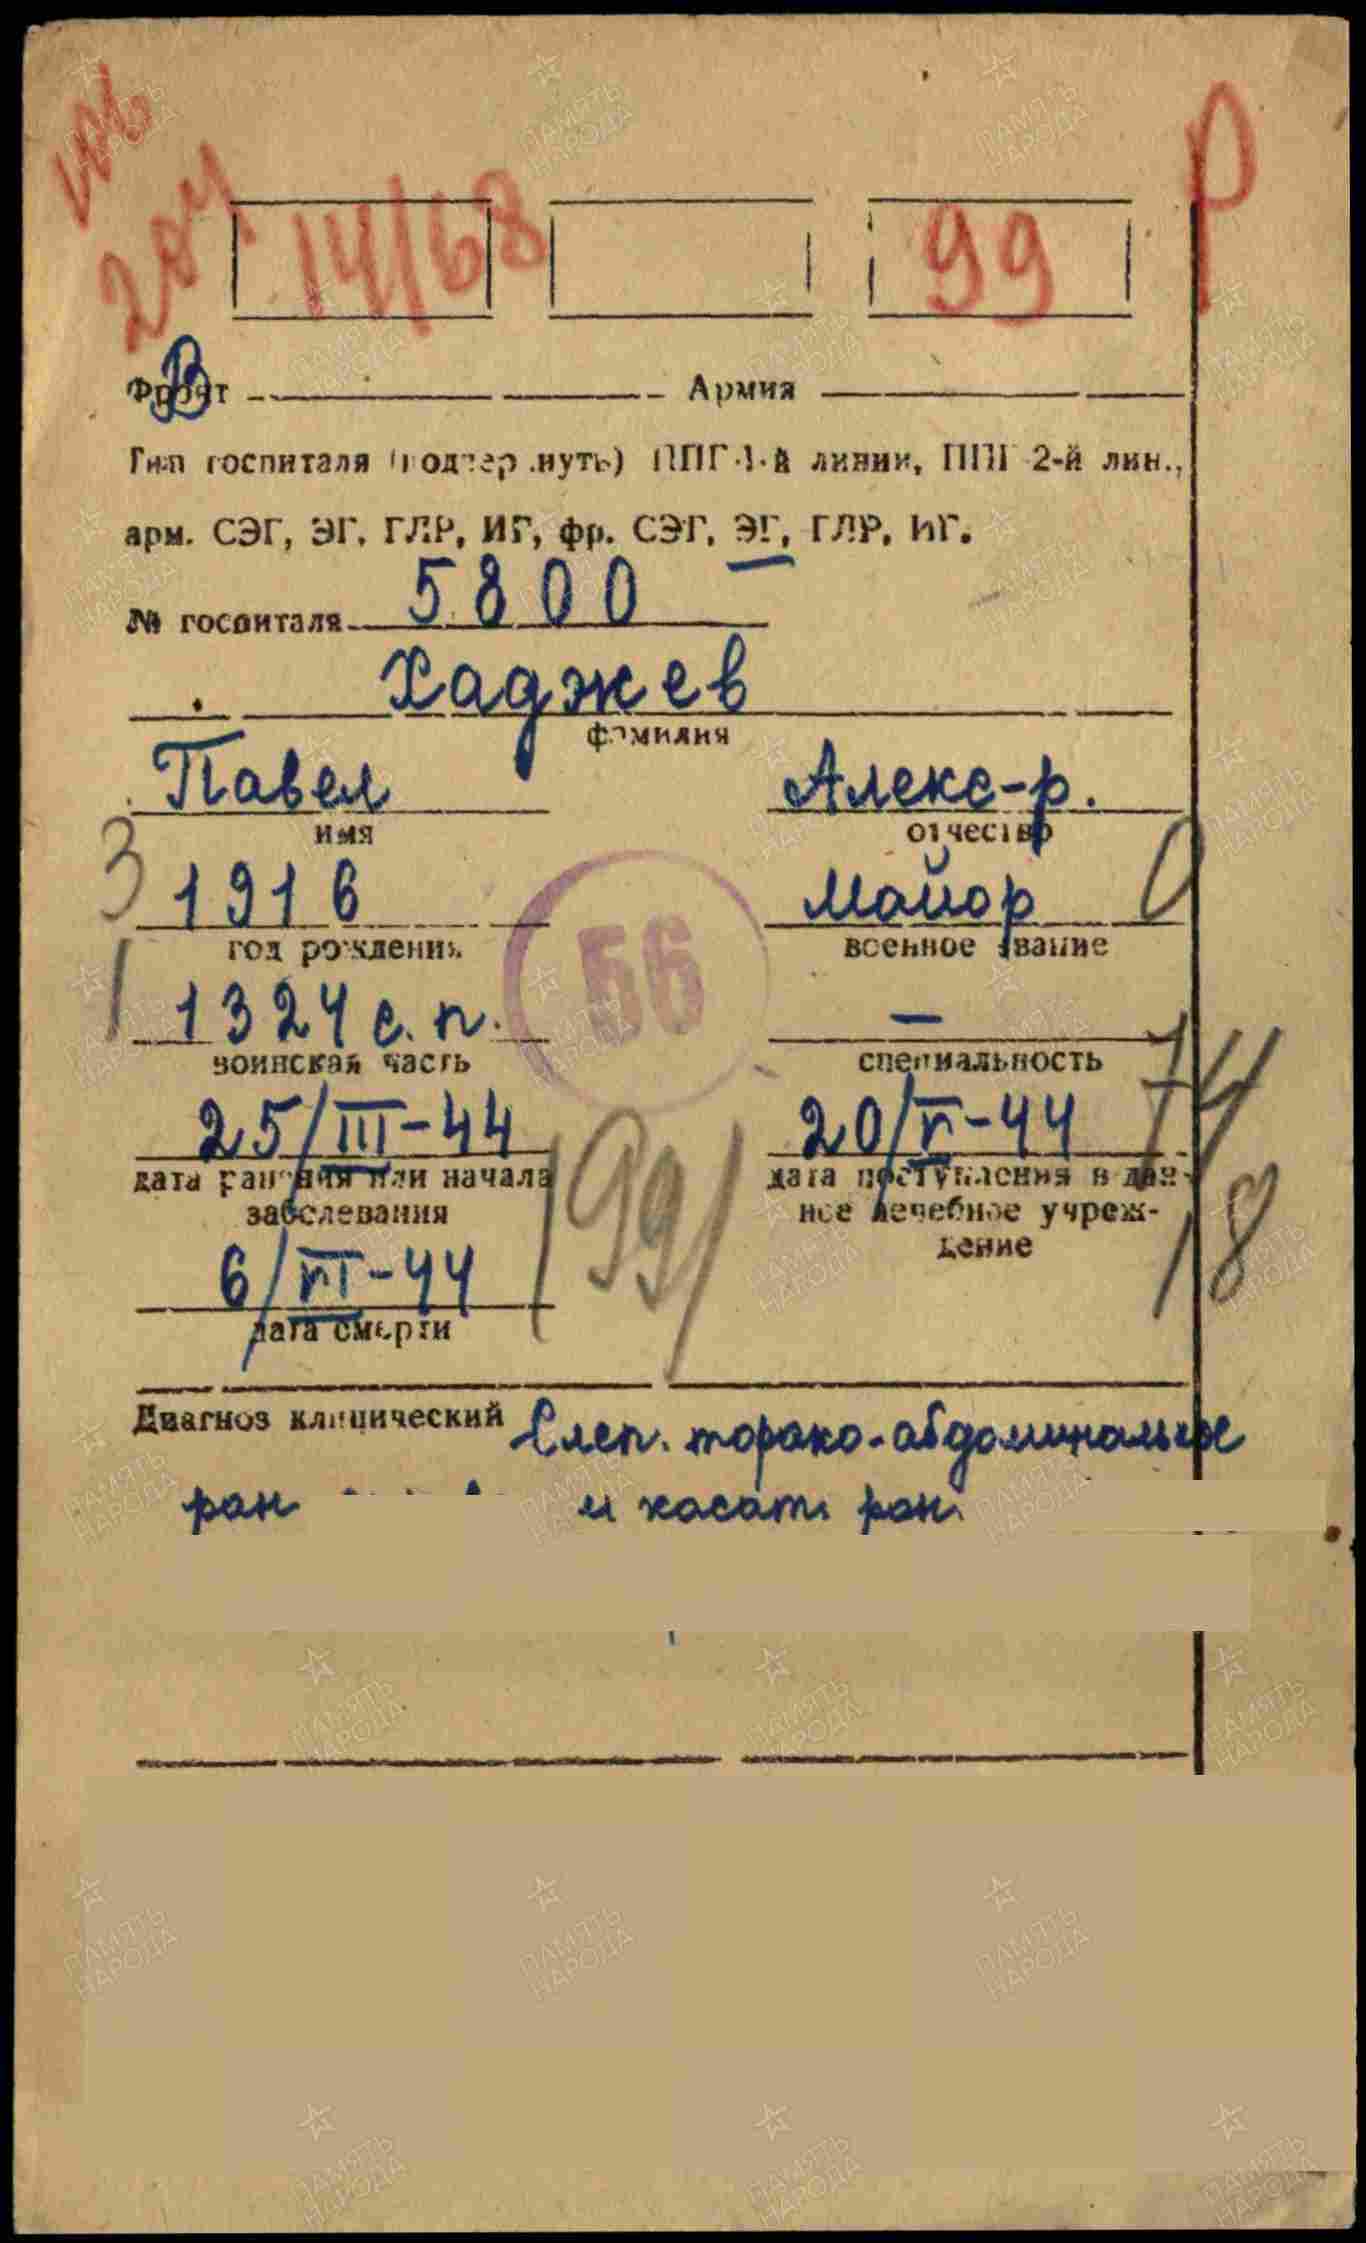 204
14/68
99
Р
Фронт Армия
Тип госпиталя (подчеркнуть) ППГ 1-й линии, ППГ 2-й лин.,
арм. СЭГ, ЭГ, ГЛР, ИГ, фр. СЭГ, ЭГ, ГЛР, ИГ.
№ госпиталя 5800
Хаджев
фамилия
Павел Алекс-р.
имя отчество
3 1916 Майор 0
год рождения военное звание
56
1 1324 с.п. —
воинская часть специальность
74
25/III-44 20/V-44
дата ранения или начала заболевания
дата поступления в данное лечебное учреждение
199/
18
6/VI-44
дата смерти
Диагноз клинический Слеп. торако-абдоминальное
ран и касат. ран.
ПАМЯТЬ НАРОДА